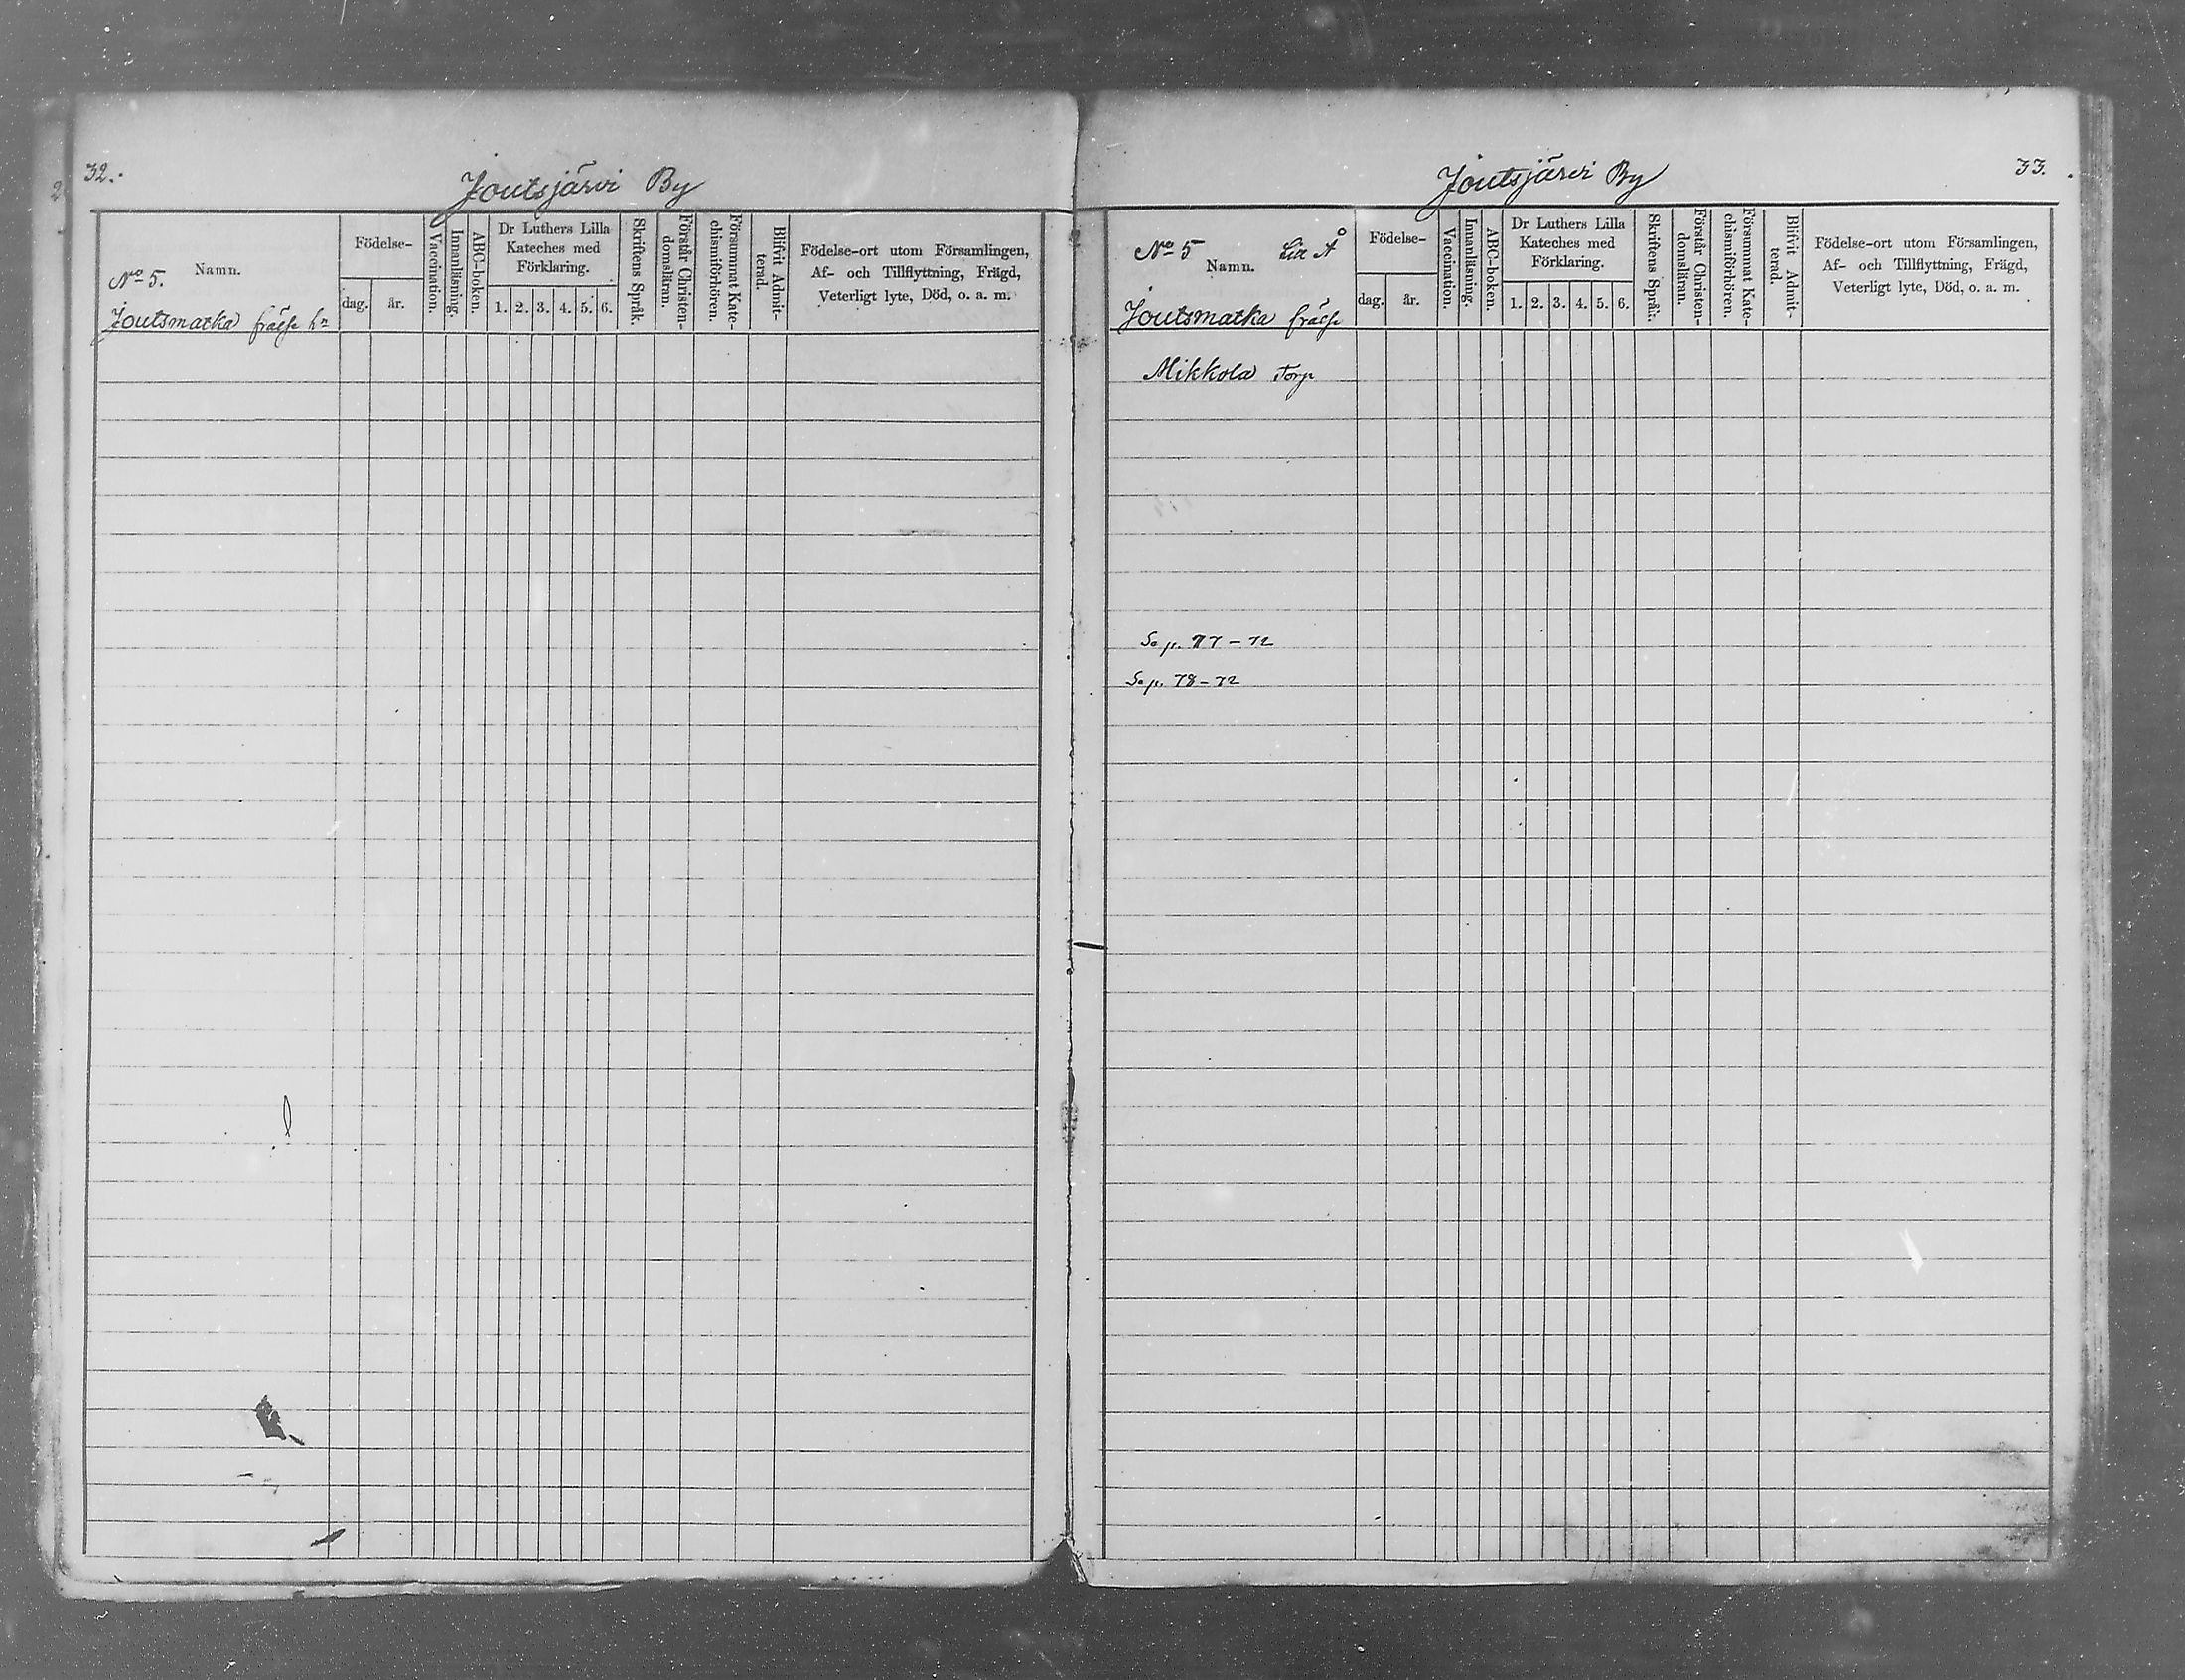 32.
Joutsjärvi By
No 5.
Namn.
Joutsmatka frälse hn
Födelse-
dag.
år.
Vaccination.
Innanläsning.
ABC-boken.
Dr Luthers Lilla
Kateches med
Förklaring.
1. 2. 3. 4. 5. 6.
Skriftens Språk.
Förstår Christen-
domsläran.
Försummat Kate-
chismiförhören.
Blifvit Admit-
terad.
Födelse-ort utom Församlingen,
Af- och Tillflyttning, Frägd,
Veterligt lyte, Död, o. a. m.
33.
Joutsjärvi By
No 5 Litt Å
Namn.
Joutsmatka frälse
Födelse-
dag.
år.
Vaccination.
Innanläsning.
ABC-boken.
Dr Luthers Lilla
Kateches med
Förklaring.
1. 2. 3. 4. 5. 6.
Skriftens Språk.
Förstår Christen-
domsläran.
Försummat Kate-
chismiförhören.
Blifvit Admit-
terad.
Födelse-ort utom Församlingen,
Af- och Tillflyttning, Frägd,
Veterligt lyte, Död, o. a. m.
Mikkola Torp
Se p. 77-72
Se p. 78-72